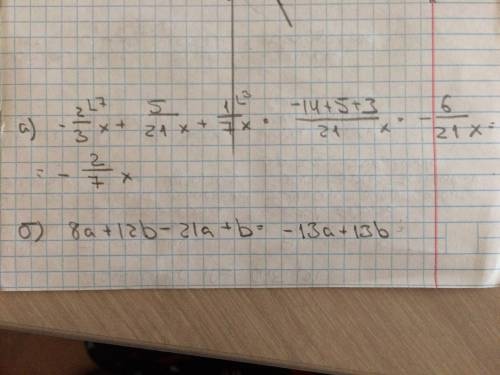 а) -2/3 ∟7 x + 5/21 x + 1/7 ∟3 x = (-14+5+3)/21 x = -6/21 x =
= -2/7 x
б) 8a+12b-21a+b= -13a+13b